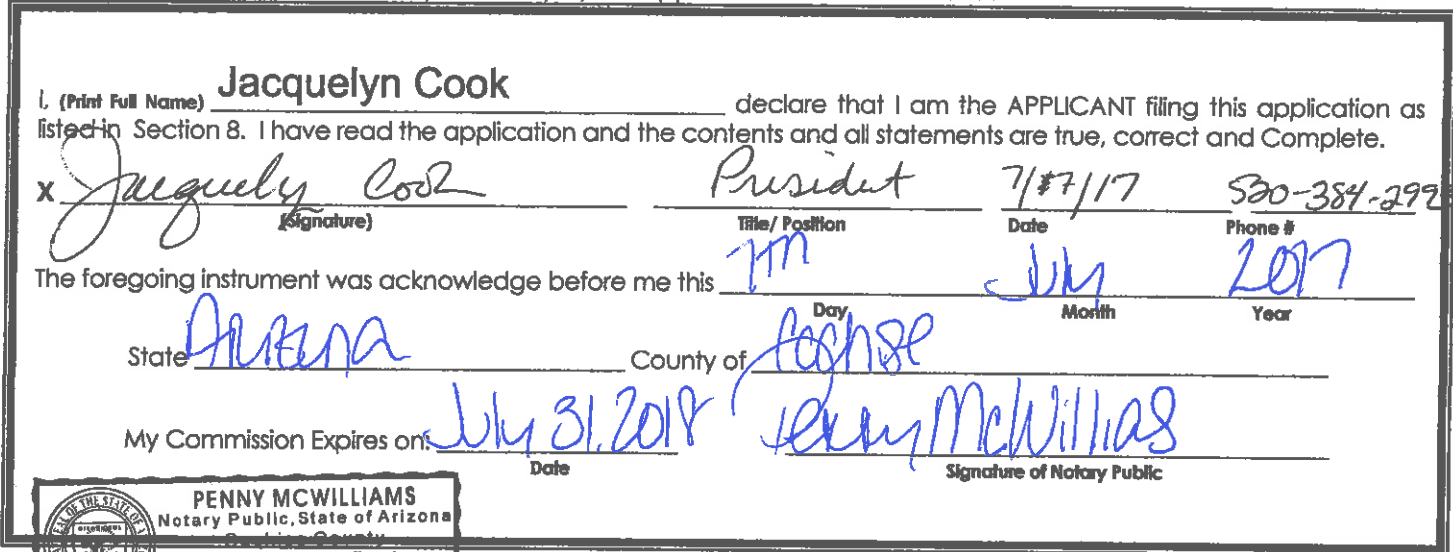 Jacquelyn Cook
I, (Print Full Name) declare that I am the APPLICANT filing this application as
listed in Section 8. I have read the application and the contents and all statements are true, correct and Complete.
X Jacquely Cook President 7/7/17 530-384-299
(Signature) Title/ Position Date Phone #
The foregoing instrument was acknowledge before me this 7th July 2017
Day Month Year
State Arizona County of Cochise
My Commission Expires on: July 31, 2018 Penny McWillias
Date Signature of Notary Public
PENNY MCWILLIAMS
Notary Public, State of Arizona